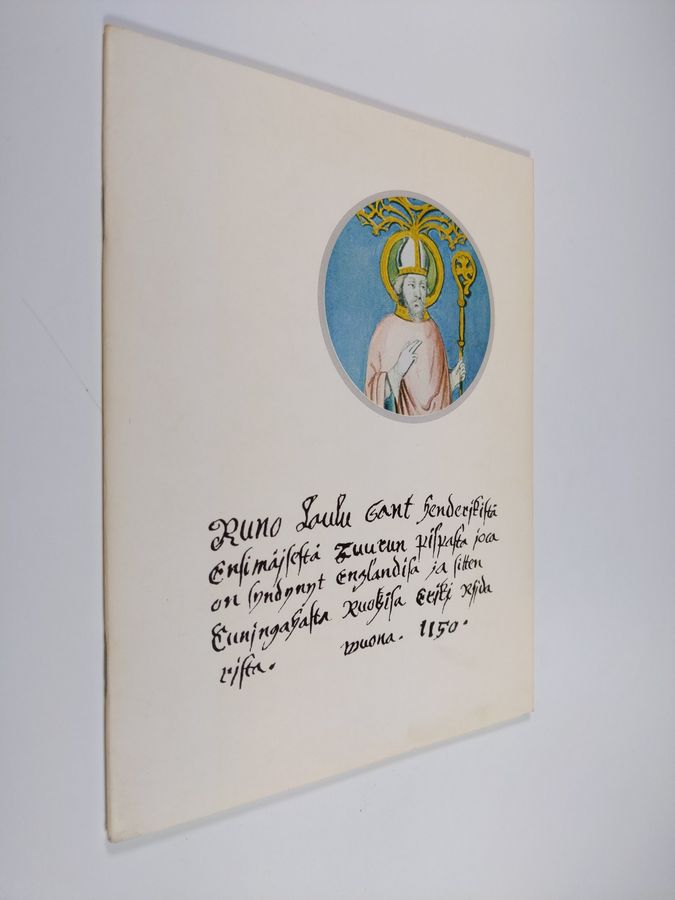 Runo Laulu Sant henderjkistä
Ensimäjsestä Tuurun pispasta joca
on syndynyt Englandisa ja sitten
Cuningahasta Ruotzisa Erikj
rista. wuona. 1150.